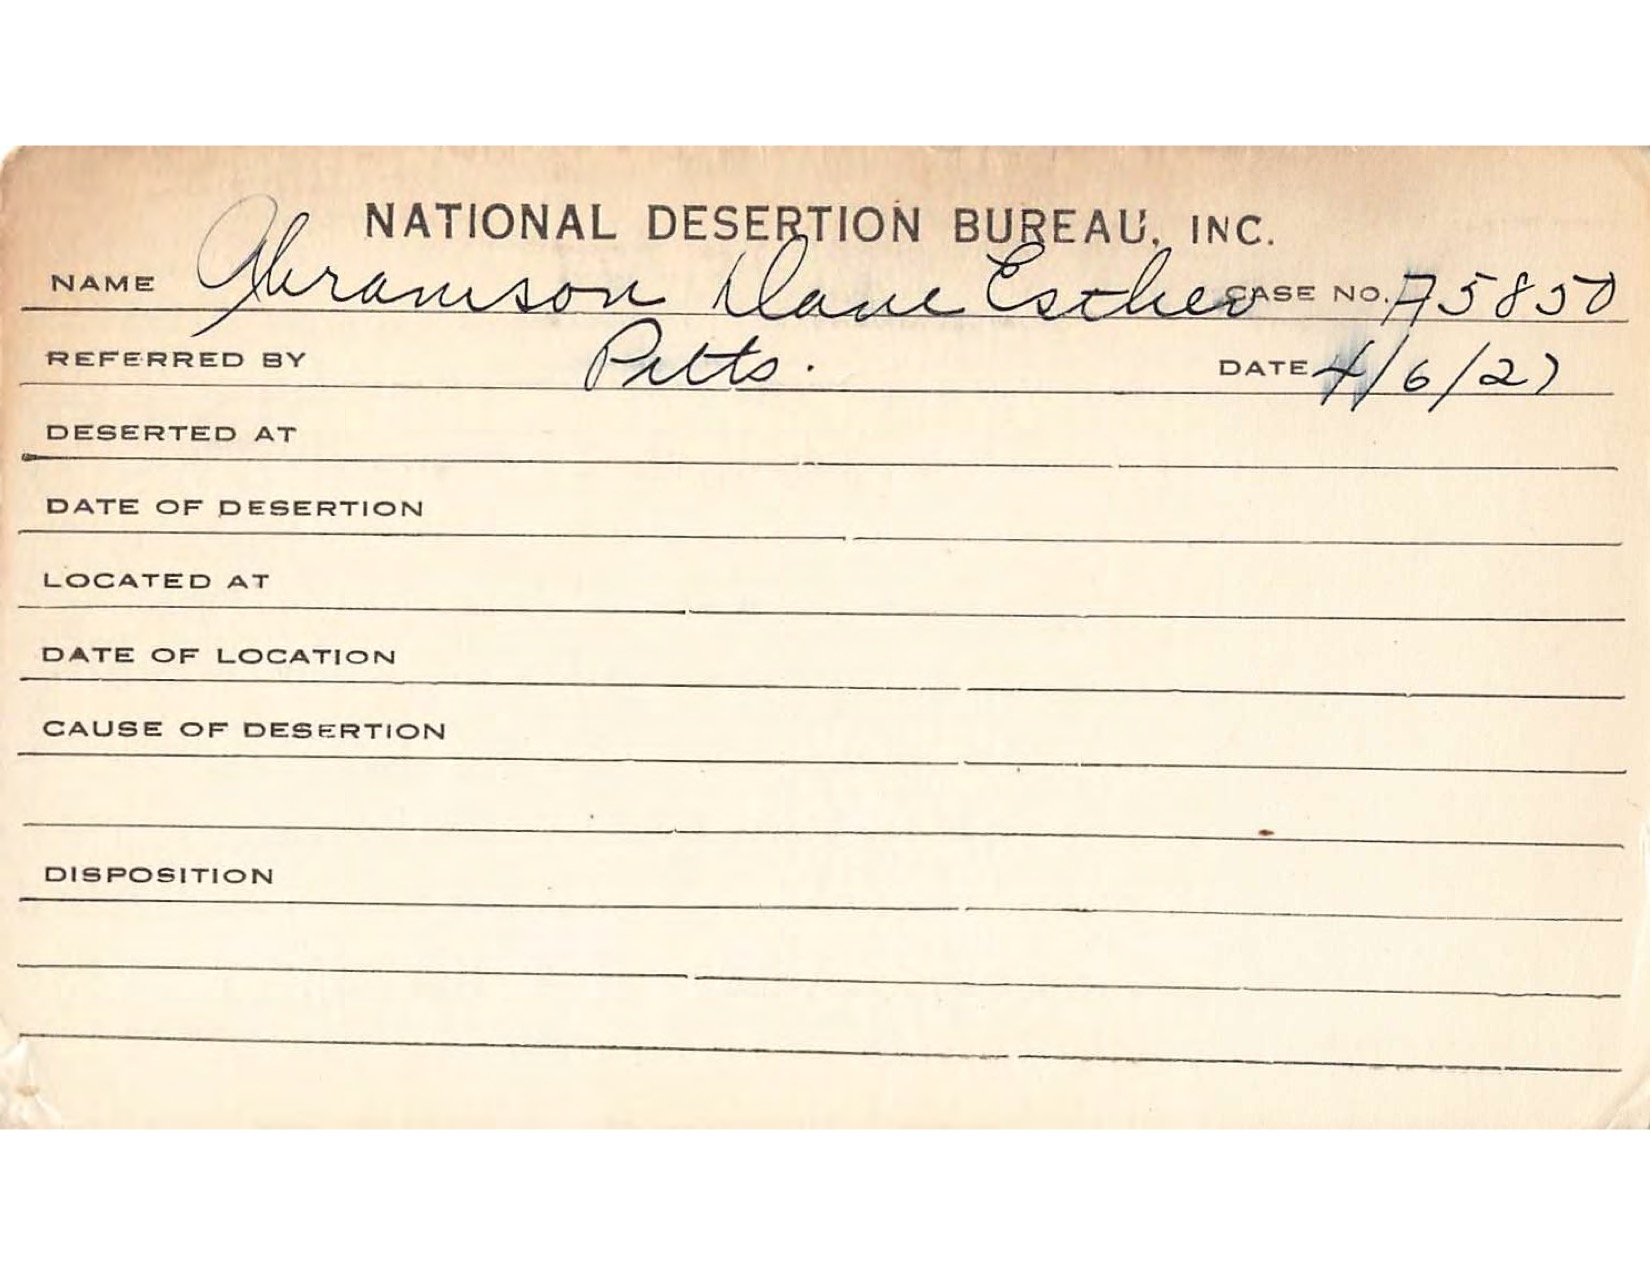 NATIONAL DESERTION BUREAU, INC.
NAME Abramson Dave Esther CASE NO. A5850
REFERRED BY Pitts. DATE 4/6/27
DESERTED AT
DATE OF DESERTION
LOCATED AT
DATE OF LOCATION
CAUSE OF DESERTION
DISPOSITION